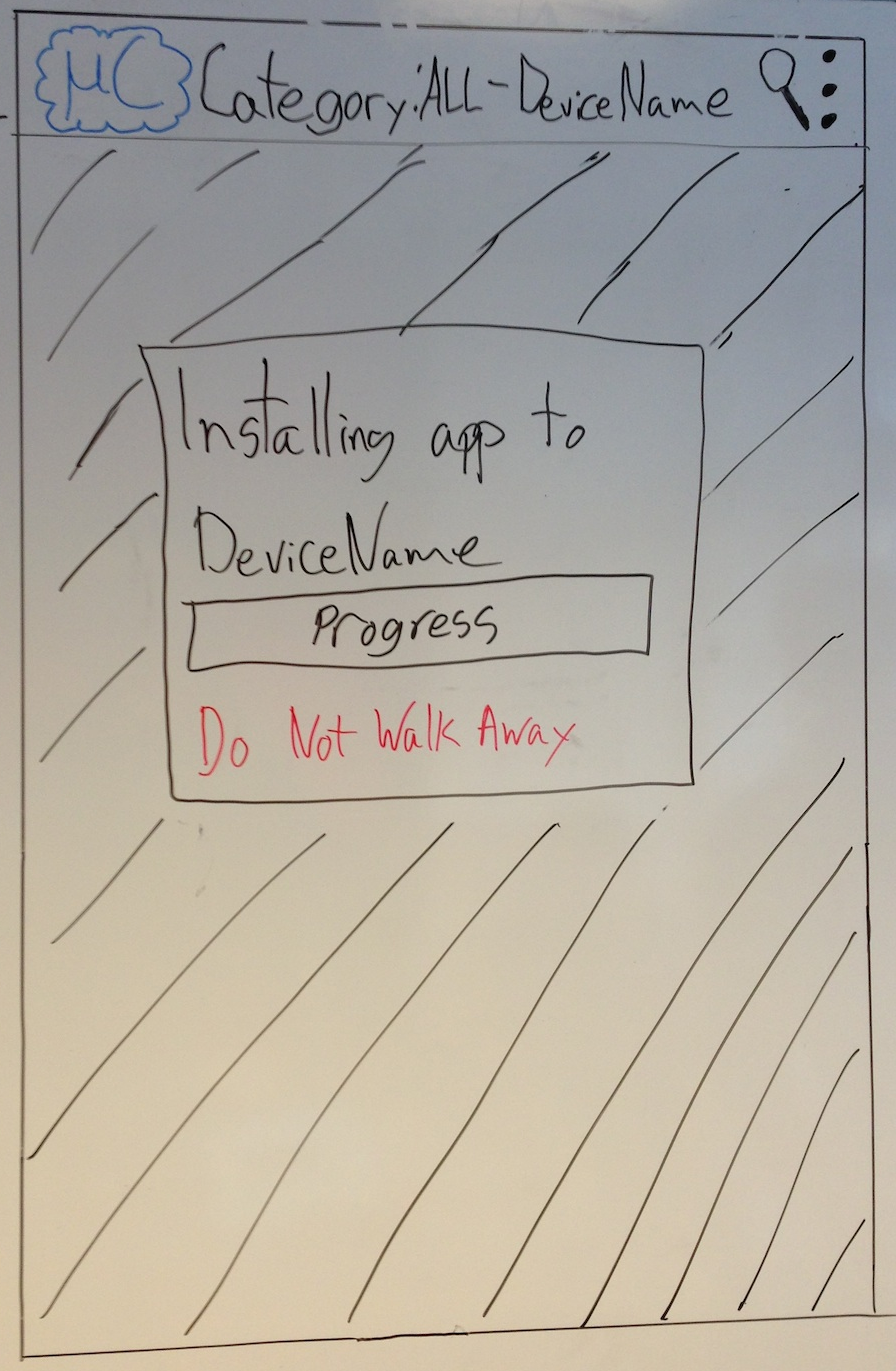 µC Category:ALL-DeviceName
Installing app to
DeviceName
Progress
Do Not Walk Away